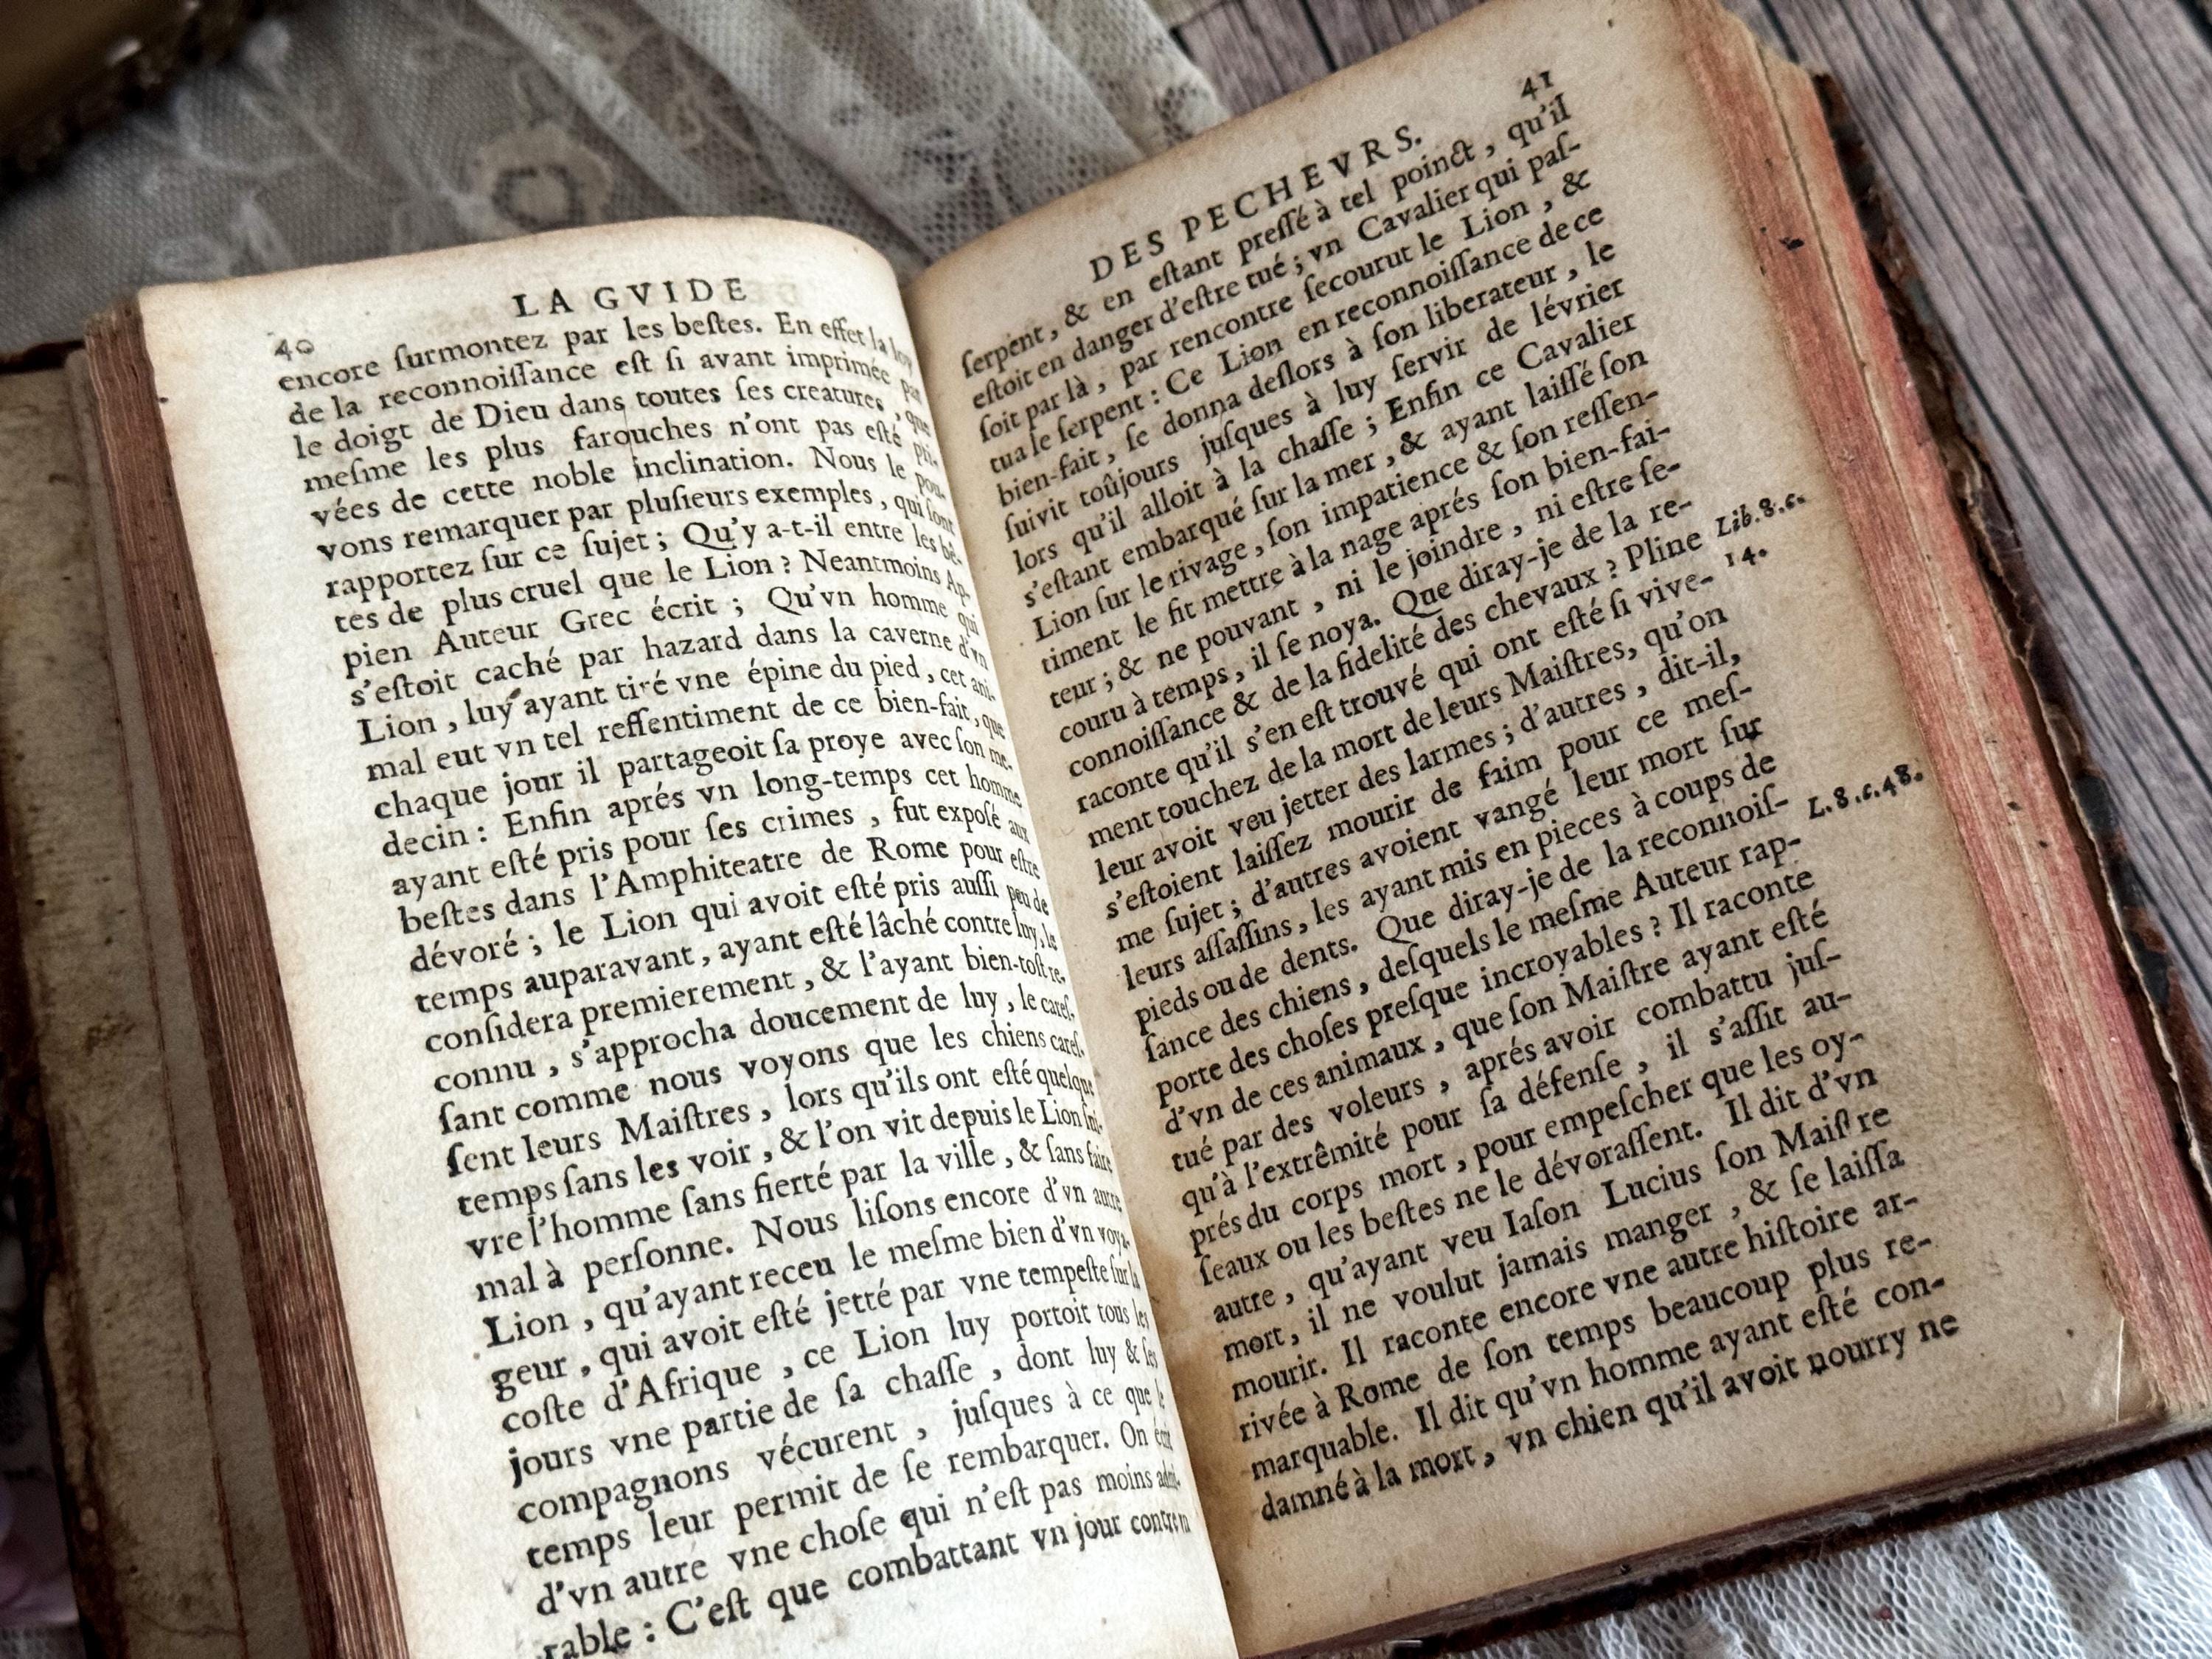 40
LA GVIDE
encore ſurmontez par les beſtes. En effet la loy
de la reconnoiſſance eſt ſi avant imprimée par
le doigt de Dieu dans toutes ſes creatures, que
meſme les plus farouches n'ont pas eſté pri-
vées de cette noble inclination. Nous le pou-
vons remarquer par pluſieurs exemples, qui ſont
rapportez ſur ce ſujet; Qu'y a-t-il entre les bê-
tes de plus cruel que le Lion? Neantmoins Ap-
pien Auteur Grec écrit; Qu'vn homme qui
s'eſtoit caché par hazard dans la caverne d'vn
Lion, luy ayant tiré vne épine du pied, cet ani-
mal eut vn tel reſſentiment de ce bien-fait, que
chaque jour il partageoit ſa proye avec ſon me-
decin: Enfin aprés vn long-temps cet homme
ayant eſté pris pour ſes crimes, fut expoſé aux
beſtes dans l'Amphiteatre de Rome pour eſtre
dévoré; le Lion qui avoit eſté pris auſſi peu de
temps auparavant, ayant eſté lâché contre luy, le
conſidera premierement, & l'ayant bien-toſt re-
connu, s'approcha doucement de luy, le careſ-
ſant comme nous voyons que les chiens careſ-
ſent leurs Maiſtres, lors qu'ils ont eſté quelque
temps ſans les voir, & l'on vit depuis le Lion ſui-
vre l'homme ſans fierté par la ville, & ſans faire
mal à perſonne. Nous liſons encore d'vn autre
Lion, qu'ayant receu le meſme bien d'vn voya-
geur, qui avoit eſté jetté par vne tempeſte ſur la
coſte d'Afrique, ce Lion luy portoit tous les
jours vne partie de ſa chaſſe, dont luy & ſes
compagnons vécurent, juſques à ce que le
temps leur permit de ſe rembarquer. On écrit
d'vn autre vne choſe qui n'eſt pas moins admi-
rable: C'eſt que combattant vn jour contre vn
41
DES PECHEVRS.
ſerpent, & en eſtant preſſé à tel poinct, qu'il
eſtoit en danger d'eſtre tué; vn Cavalier qui paſ-
ſoit par là, par rencontre ſecourut le Lion, &
tua le ſerpent: Ce Lion en reconnoiſſance de ce
bien-fait, ſe donna deſlors à ſon liberateur, le
ſuivit toûjours juſques à luy ſervir de lévrier
lors qu'il alloit à la chaſſe; Enfin ce Cavalier
s'eſtant embarqué ſur la mer, & ayant laiſſé ſon
Lion ſur le rivage, ſon impatience & ſon reſſen-
timent le fit mettre à la nage aprés ſon bien-fai-
teur; & ne pouvant, ni le joindre, ni eſtre ſe-
couru à temps, il ſe noya. Que diray-je de la re-
connoiſſance & de la fidelité des chevaux? Pline
Lib. 8. c.
14.
raconte qu'il s'en eſt trouvé qui ont eſté ſi vive-
ment touchez de la mort de leurs Maiſtres, qu'on
leur avoit veu jetter des larmes; d'autres, dit-il,
s'eſtoient laiſſez mourir de faim pour ce meſ-
me ſujet; d'autres avoient vangé leur mort ſur
leurs aſſaſſins, les ayant mis en pieces à coups de
pieds ou de dents. Que diray-je de la reconnoiſ-
L. 8. c. 48.
ſance des chiens, deſquels le meſme Auteur rap-
porte des choſes preſque incroyables? Il raconte
d'vn de ces animaux, que ſon Maiſtre ayant eſté
tué par des voleurs, aprés avoir combattu juſ-
qu'à l'extrêmité pour ſa défenſe, il s'aſſit au-
prés du corps mort, pour empeſcher que les oy-
ſeaux ou les beſtes ne le dévoraſſent. Il dit d'vn
autre, qu'ayant veu Iaſon Lucius ſon Maiſtre
mort, il ne voulut jamais manger, & ſe laiſſa
mourir. Il raconte encore vne autre hiſtoire ar-
rivée à Rome de ſon temps beaucoup plus re-
marquable. Il dit qu'vn homme ayant eſté con-
damné à la mort, vn chien qu'il avoit nourry ne